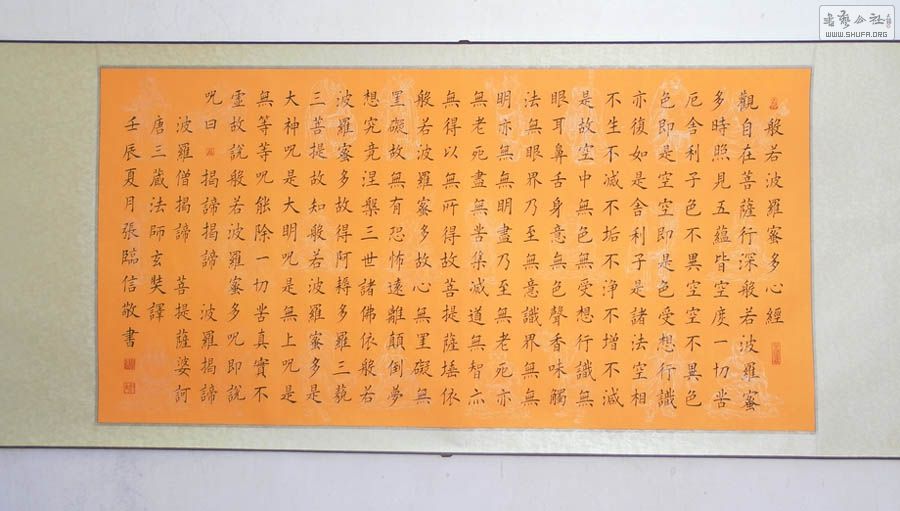 般若波羅蜜多心經
觀自在菩薩行深般若波羅蜜
多時照見五蘊皆空度一切苦
厄舍利子色不異空空不異色
色即是空空即是色受想行識
亦復如是舍利子是諸法空相
不生不滅不垢不淨不增不減
是故空中無色無受想行識無
眼耳鼻舌身意無色聲香味觸
法無眼界乃至無意識界無無
明亦無無明盡乃至無老死亦
無老死盡無苦集滅道無智亦
無得以無所得故菩提薩埵依
般若波羅蜜多故心無罣礙無
罣礙故無有恐怖遠離顛倒夢
想究竟涅槃三世諸佛依般若
波羅蜜多故得阿耨多羅三藐
三菩提故知般若波羅蜜多是
大神呪是大明呪是無上呪是
無等等呪能除一切苦真實不
虛故說般若波羅蜜多呪即說
呪曰 揭諦揭諦 波羅揭諦
波羅僧揭諦 菩提薩婆訶
唐三藏法師玄奘譯
壬辰夏月張臨信敬書
書藝公社
WWW.SHUFA.ORG